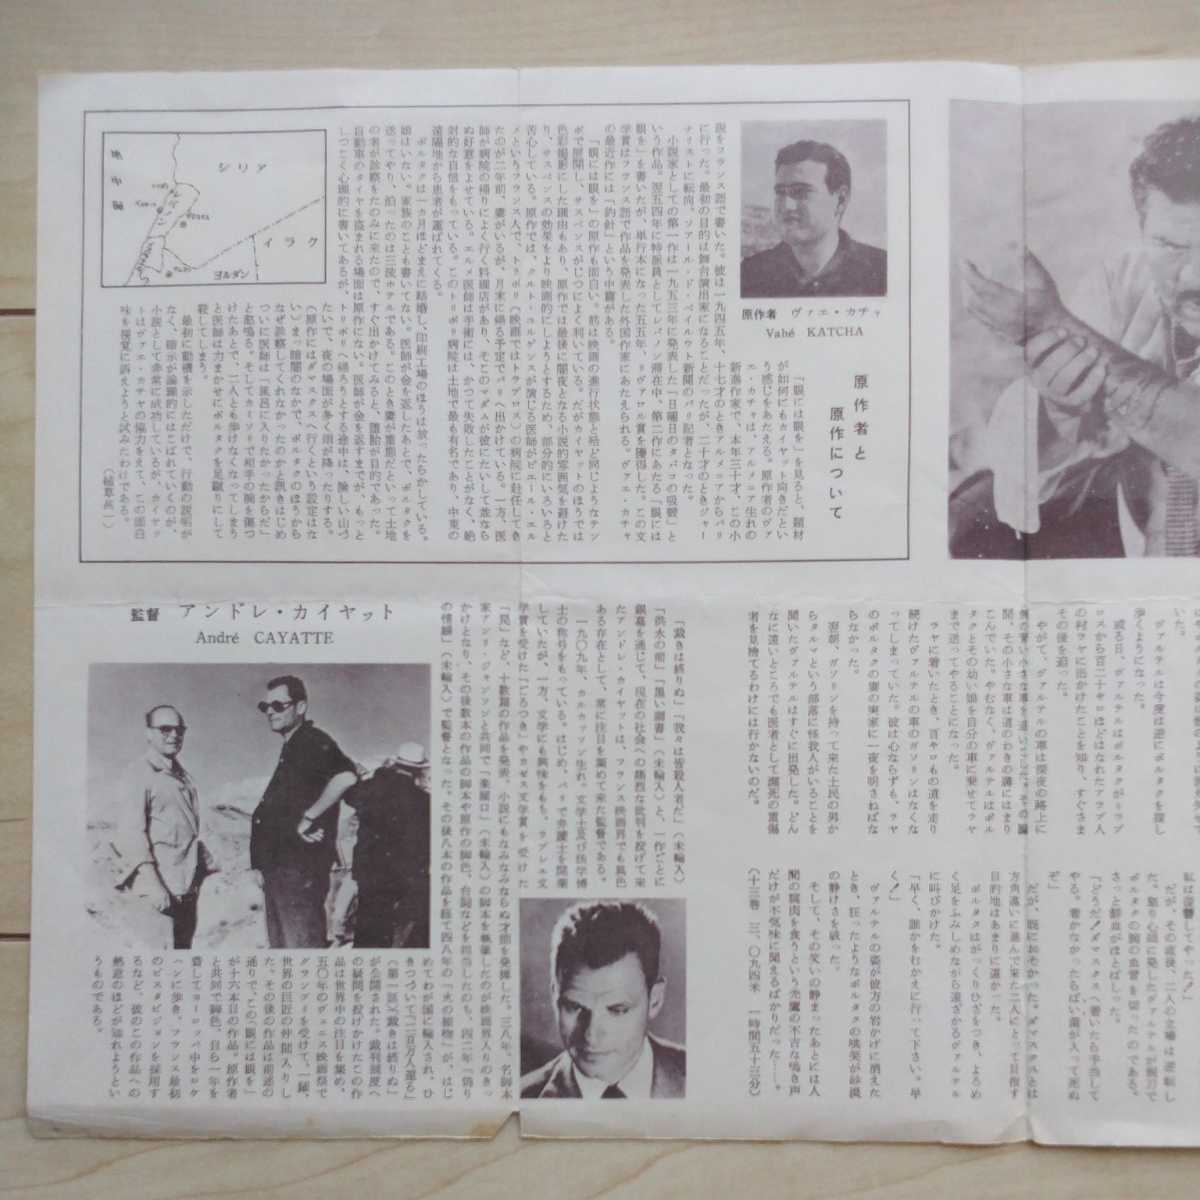 原作者と
原作について
原作者 ヴァエ・カチャ
Vahé KATCHA
「眼には眼を」を見ると、題材
が如何にもカイヤット向きだとい
う感じをあたえる。原作者のヴァ
エ・カチャは、アルメニア生れの
新進作家で、本年三十才、この小
説をフランス語で書いた。彼は一九四五年、十七才のときアルメニアからパリ
に行った。最初の目的は舞台演出家になることだったが、二十才のときジャー
ナリストに転向、ソアール・ド・ベイルウト新聞のパリ記者となった。
小説家としての第一作は一九五三年に発表した「日曜日のタバコの吸殻」と
いう作品。翌五四年に特派員としてレバノン滞在中、第二作にあたる「眼には
眼を」を書いたが、単行本になった五五年、リヴァロル賞を獲得した。この文
学賞はフランス語で作品を発表した外国作家にあたえられる。ヴァエ・カチャ
の最近作には「釣針」という中篇がある。
「眼には眼を」の原作も面白い。筋は映画の進行状態と殆ど同じようなテン
ポで展開し、サスペンスがじつによく利いている。だがカイヤットのほうでは
色彩撮影にした理由もあり、原作では最後に闇夜となる小説的雰囲気を避けた
り、サスペンスの効果をより映画的にしようとするため、部分的にいろいろと
苦心している。原作では、クルト・ユルゲンスが演じる医師がピエール・エル
メというフランス人で、トリポリ(映画ではトラブロス)の病院に赴任してき
たのが二年前、妻がいるが、月末に帰る予定でパリへ出かけている。一方、医
師が病院の帰りによく行く料理店があり、そこのマダムが彼にたいして並なら
ぬ好意をよせている。エルメ医師は手術には、かつて失敗したことがなく、絶
対的な自信をもっている。このトリポリ病院は土地で最も有名であり、中東の
遠隔地から患者が運ばれてくる。
ボルタクは一カ月ほどまえに結婚し、印刷工場のほうは放ったらかしている。
娘はいない。家族のことも書いてない。医師が金を返したあとで、ボルタクを
送ってやり、泊ったのは三流ホテルである。このとき妻が重態だといって土地
の者が診察をたのみに来たので、すぐ出かけてみると、堕胎が目的であった。
自動車のタイヤを盗まれる場面は原作にない。医師が金を返すまでが、もっと
しつこく心理的に書いてあるが、トリポリへ帰ろうとする途中は、険しい山づ
たいで、夜の場面が多く雨が降ったりする。
(原作にはダマスクスへ行くという設定はな
い)まっ暗闇のなかで、ボルタクのほうから
なぜ診察してくれなかったのかと訊きはじめ
ついに医師は「風呂に入りたかったからだ」
と怒鳴る。そしてカミソリで相手の腕を傷つ
けたあとで、二人とも歩けなくなってしまう
と医師は力まかせにボルタクを足蹴りにして
殺してしまう。
最初に動機を示しただけで、行動の説明が
なく、暗示が論理的にはこばれていくのが、
小説として非常に成功しているが、カイヤッ
トはヴァエ・カチャの協力をえて、この面白
味を視覚に訴えようと試みたわけである。
(植草甚一)
地中海
シリア
レバノン
イラク
ヨルダン
監督 アンドレ・カイヤット
André CAYATTE
「裁きは終りぬ」「我々は皆殺人者だ」(未輸入)
「洪水の前」「黒い調書」(未輸入)と、一作ごとに
銀幕を通じて、現在の社会への痛烈な批判を投げて来
たアンドレ・カイヤットは、フランス映画界でも異色
ある存在として、常に注目を集めて来た監督である。
一九〇九年、カルカッソン生れ。文学士及び法学博
士の称号をもっている。はじめ、パリで弁護士を開業
していたが、一方、文学にも興味をもち、ラブレエ文
学賞を受けた「ごろつき」やカゼス文学賞を受けた
「罠」など、十数篇の作品を発表、小説にもなみなみならぬ才能を発揮した。三八年、名脚本
家アンリ・ジャンソンと共同で「楽屋口」(未輸入)の脚本を執筆したのが映画界入りのきっ
かけとなり、その後数本の作品の脚本や原作の脚色、台詞などを担当したのち、四二年「偽り
の情婦」(未輸入)で監督となった。その後八本の作品を経て四八年の「火の接吻」が、はじ
めてわが国に輸入され、ひ
きつづいて「二百万人還る」
(第一話)「裁きは終りぬ」
が公開された。裁判制度へ
の疑問を投げかけたこの作
品は世界中の注目を集め、
五〇年のヴェニス映画祭で
グランプリを受けて、一躍、
世界の巨匠の仲間入りし
た。その後の作品は前述の
通りで、この「眼には眼を」
が十六本目の作品。原作者
と共同で脚色、自ら一年を
費してヨーロッパ中をロケ
ハンに歩き、フランス最初
のビスタビジョンを採用す
るなど、彼のこの作品への
熱意のほどが知れようとい
うものである。
いた。
ヴァルテルは今度は逆にボルタクを探し
歩くようになった。
或る日、ヴァルテルはボルタクがトラブ
ロスから百二十キロほどはなれたアラブ人
の村ラヤに出かけたことを知り、すぐさま
その後を追った。
やがて、ヴァルテルの車は深夜の路上に
聞、その小さな車は道のわきの溝にはまり
こんでいた。やむなく、ヴァルテルはボル
タクとその幼い娘を自分の車に乗せてラヤ
まで送ってやることになった。
ラヤに着いたとき、百キロもの道を走り
続けたヴァルテルの車のガソリンはなくな
ってしまっていた。彼は心ならずも、ラヤ
のボルタクの妻の実家に一夜を明さねばな
らなかった。
翌朝、ガソリンを持って来た土民の男か
らタルマという部落に怪我人がいることを
聞いたヴァルテルはすぐに出発した。どん
なに遠いところでも医者として瀕死の重傷
者を見捨てるわけには行かないのだ。
だが、その直後、二人の立場は逆転し
た。怒り心頭に発したヴァルテルが剃刀で
ボルタクの腕の血管を切ったのである。
さっと鮮血がほとばしった。
「どうだ！ダマスクスへ着いたら手当して
やる。着かなかったらばい菌が入って死ぬ
ぞ」
だが、既におそかった。ダマスクスとは
方角違いに進んで来た二人にとって目指す
目的地はあまりに遠かった。
ボルタクはがっくりひざをつき、よろめ
く足をふみしめながら遠ざかるヴァルテル
に叫びかけた。
「早く、誰かをむかえに行って下さい。早
く！」
ヴァルテルの姿が彼方の岩かげに消えた
とき、狂ったようなボルタクの哄笑が砂漠
の静けさを破った。
そして、その笑いの静まったあとには人
間の腐肉を食うという禿鷹の不吉な鳴き声
だけが不気味に聞えるばかりだった……。
(十三巻 三、〇九四米 一時間五十三分)